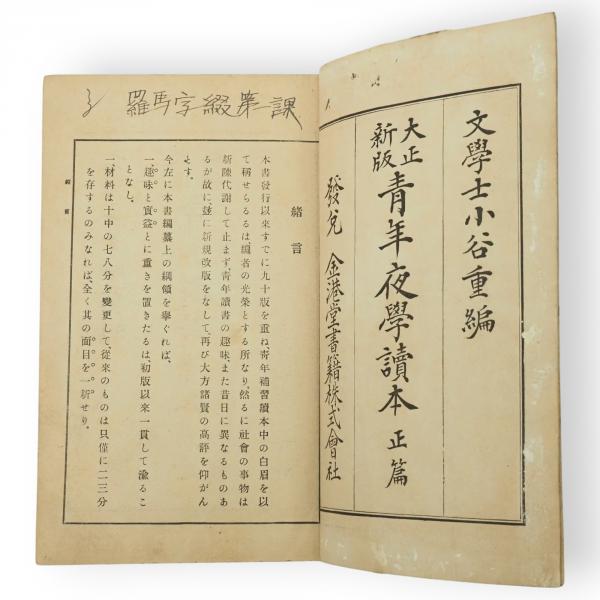 文學士小谷重編
大正
新版
青年夜學讀本 正篇
發兌 金港堂書籍株式會社
羅馬字綴第一課
緒言
本書發行以來すでに九十版を重ね、靑年補習讀本中の白眉を以
て稱せらるるは、編者の光榮とする所なり。然るに社會の事物は
新陳代謝して止まず、靑年讀書の趣味また昔日に異なるものあ
るが故に、玆に新規改版をなして、再び大方諸賢の高評を仰がん
とす。
今左に本書編纂上の綱領を擧ぐれば、
一、趣味と實益とに重きを置きたるは、初版以來一貫して渝るこ
となし。
一、材料は十中の七八分を變更して、從來のものは只僅に二三分
を存するのみなれば、全く其の面目を一新せり。
緒言